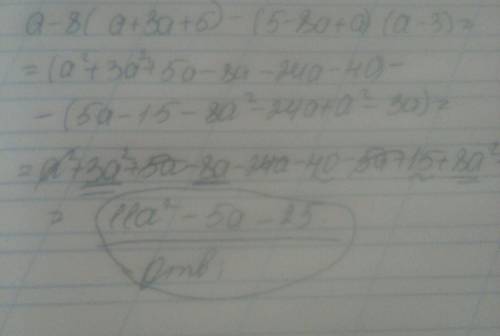 a-8( a+3a+5) - (5-8a+a) (a-3)=
=(a²+3a²+5a-8a-24a-40)-
-(5a-15-8a²-24a+a²-3a)=
=a²+3a²+5a-8a-24a-40-5a+15+8a²
= 11a²-5a-25
Отв.